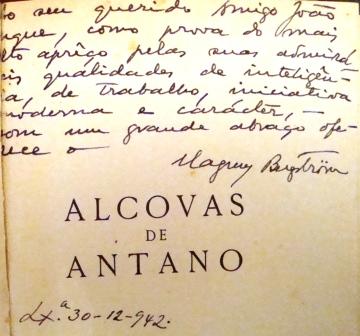 o seu querido Amigo João
ngue, como prova do mais
lto aprêço pelas suas admirá
is qualidades de inteligên
a, de trabalho, iniciativa
moderna e carácter, —
com um grande abraço ofe
rece o —
Magnus Bergström
ALCOVAS
DE
ANTANO
Lx.ª 30-12-942.